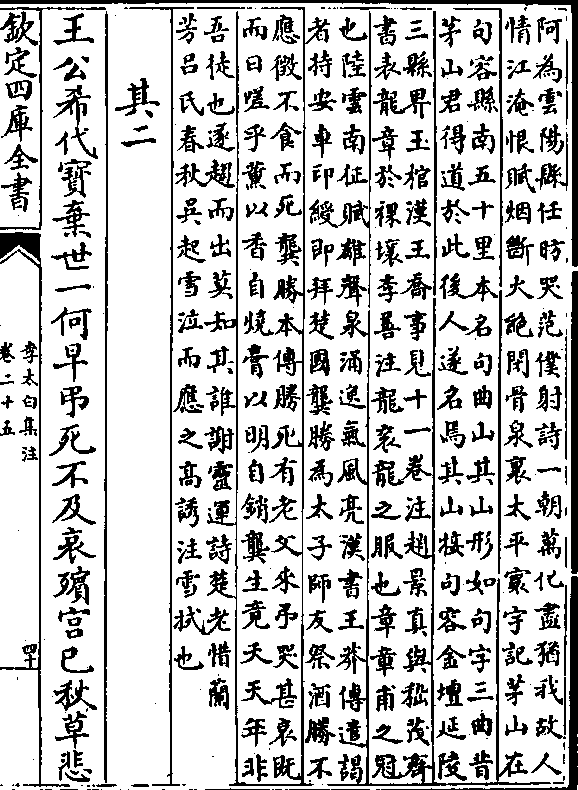 阿為雲陽縣任昉哭范僕射詩一朝萬化盡猶我故人
情江淹恨賦烟斷火絶閉骨泉裏太平寰宇記茅山在
句容縣南五十里本名句曲山其山形如句字三曲昔
茅山君得道於此後人遂名焉其山接句容金壇延陵
三縣界玉棺漢王喬事見十一卷注趙景真與嵇茂齊
書表龍章於裸壤李善注龍衮龍之服也章章甫之冠
也陸雲南征賦雄聲泉涌逸氣風亮漢書王莽傳遣謁
者持安車印綬即拜楚國龔勝為太子師友祭酒勝不
應徴不食而死龔勝本傳勝死有老父來弔哭甚哀既
而曰嗟乎薫以香自燒膏以明自銷龔生竟夭天年非
吾徒也遂趨而出莫知其誰謝靈運詩楚老惜蘭
芳吕氏春秋吳起雪泣而應之高誘注雪拭也
其二
王公希代寶棄世一何早弔死不及哀殯宮已秋草悲
欽定四庫全書
李太白集注
卷二十五
四十